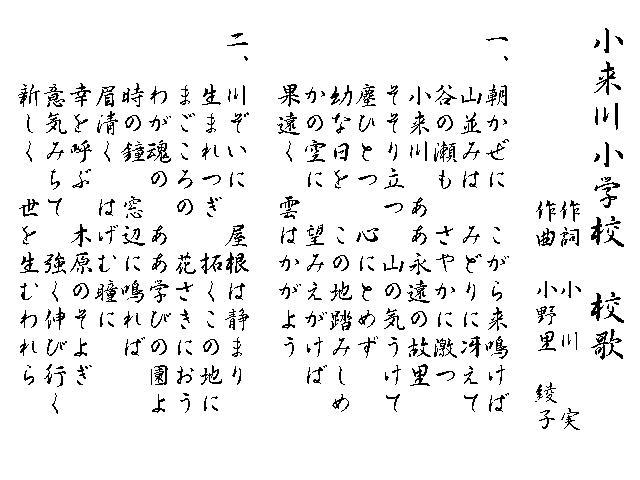 小来川小学校　校歌
作詞　小川　実
作曲　小野里　綾子
一、
朝かぜに　こがら来鳴けば
山並みは　みどりに冴えて
谷の瀬も　さやかに激つ
小来川　ああ永遠の故里
そそり立つ　山の気うけて
塵ひとつ　心にとめず
幼な日を　この地踏みしめ
かの空に　望みえがけば
果遠く　雲はかがよう
二、
川ぞいに　屋根は静まり
生まれつぎ　拓くこの地に
まごころの　花さきにおう
わが魂の　ああ学びの園よ
時の鐘　窓辺に鳴れば
眉清く　はげむ瞳に
幸を呼ぶ　木原のそよぎ
意気みちて　強く伸び行く
新しく　世を生むわれら